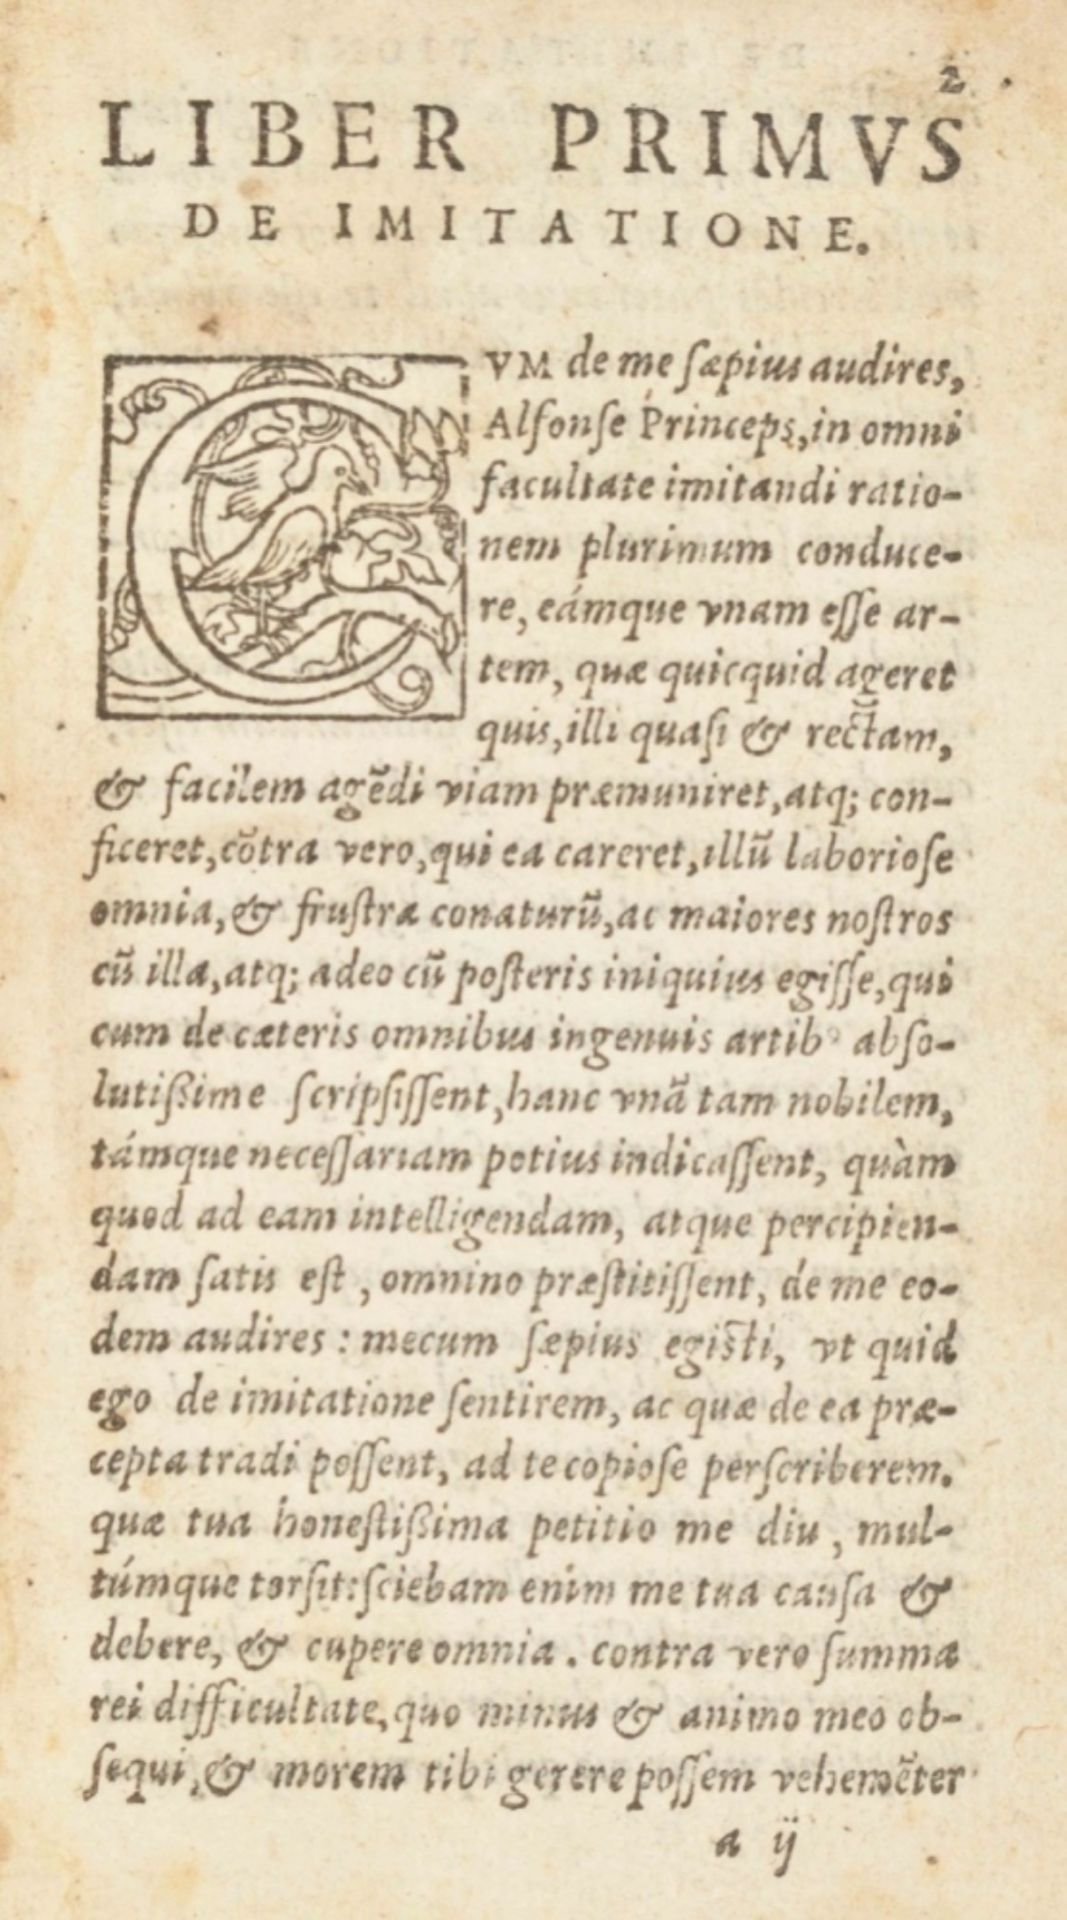 2
LIBER PRIMVS
DE IMITATIONE.
CVM de me sæpius audires,
Alfonse Princeps, in omni
facultate imitandi ratio-
nem plurimum conduce-
re, eámque vnam esse ar-
tem, quæ quicquid ageret
quis, illi quasi & rectam,
& facilem agẽdi viam præmuniret, atq; con-
ficeret, cõtra vero, qui ea careret, illũ laboriose
omnia, & frustra conaturũ, ac maiores nostros
cũ illa, atq; adeo cũ posteris iniquius egisse, qui
cum de cæteris omnibus ingenuis artibꝰ abso-
lutißime scripsissent, hanc vnã tam nobilem,
támque necessariam potius indicassent, quàm
quod ad eam intelligendam, atque percipien-
dam satis est, omnino præstitissent, de me eo-
dem audires: mecum sæpius egisti, vt quid
ego de imitatione sentirem, ac quæ de ea præ-
cepta tradi possent, ad te copiose perscriberem.
quæ tua honestißima petitio me diu, mul-
túmque torsit: sciebam enim me tua causa &
debere, & cupere omnia. contra vero summa
rei difficultate, quo minus & animo meo ob-
sequi, & morem tibi gerere possem vehemẽter
a ij